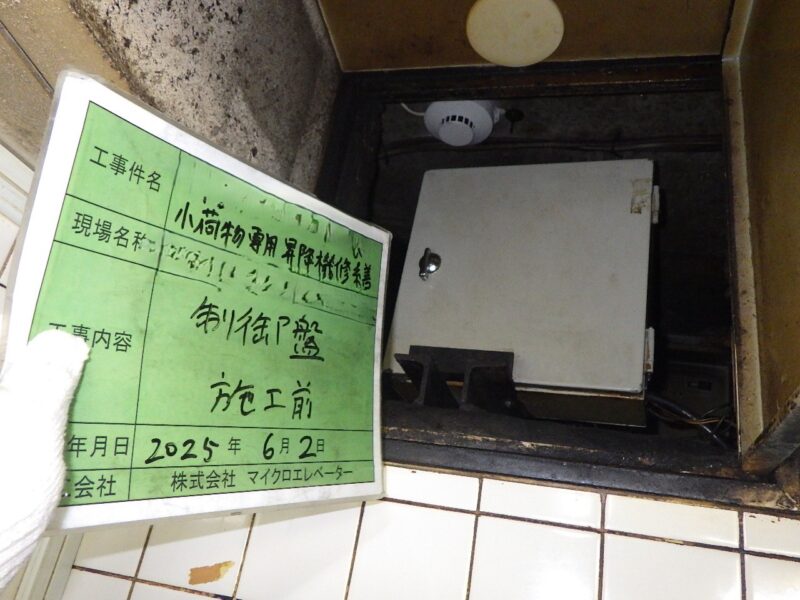 工事件名
小荷物専用昇降機修繕
現場名称
工事内容
制御盤
施工前
年月日 2025年 6月2日
会社 株式会社 マイクロエレベーター